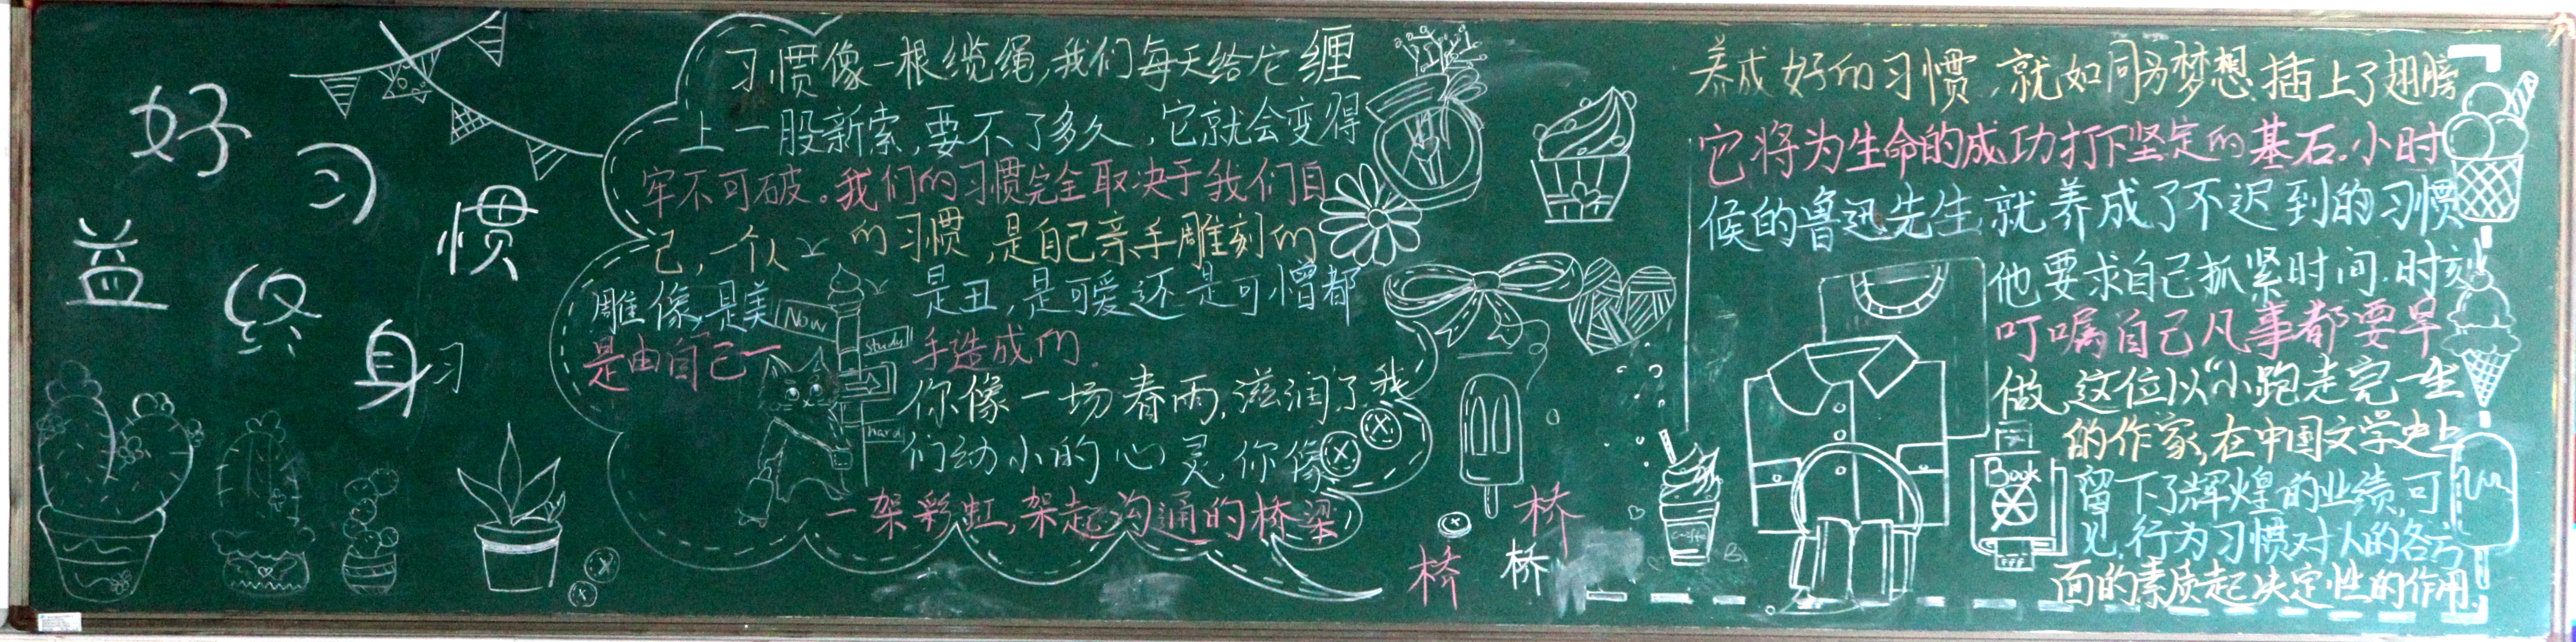 好习惯
益终身
习
习惯像一根缆绳,我们每天给它缠
上一股新索,要不了多久,它就会变得
牢不可破。我们的习惯完全取决于我们自
己,一个人的习惯,是自己亲手雕刻的
雕像,是美是丑,是可爱还是可憎都
是由自己一手造成的.
你像一场春雨,滋润了我
们幼小的心灵,你像
一架彩虹,架起沟通的桥梁
Now
study
hard
桥
桥
桥
养成好的习惯,就如同为梦想插上了翅膀
它将为生命的成功打下坚定的基石.小时
候的鲁迅先生,就养成了不迟到的习惯
他要求自己抓紧时间.时刻
叮嘱自己凡事都要早
做,这位以“小跑走完一生
的作家,在中国文学史上
留下了辉煌的业绩,可
见,行为习惯对人的各方
面的素质起决定性的作用.
Book